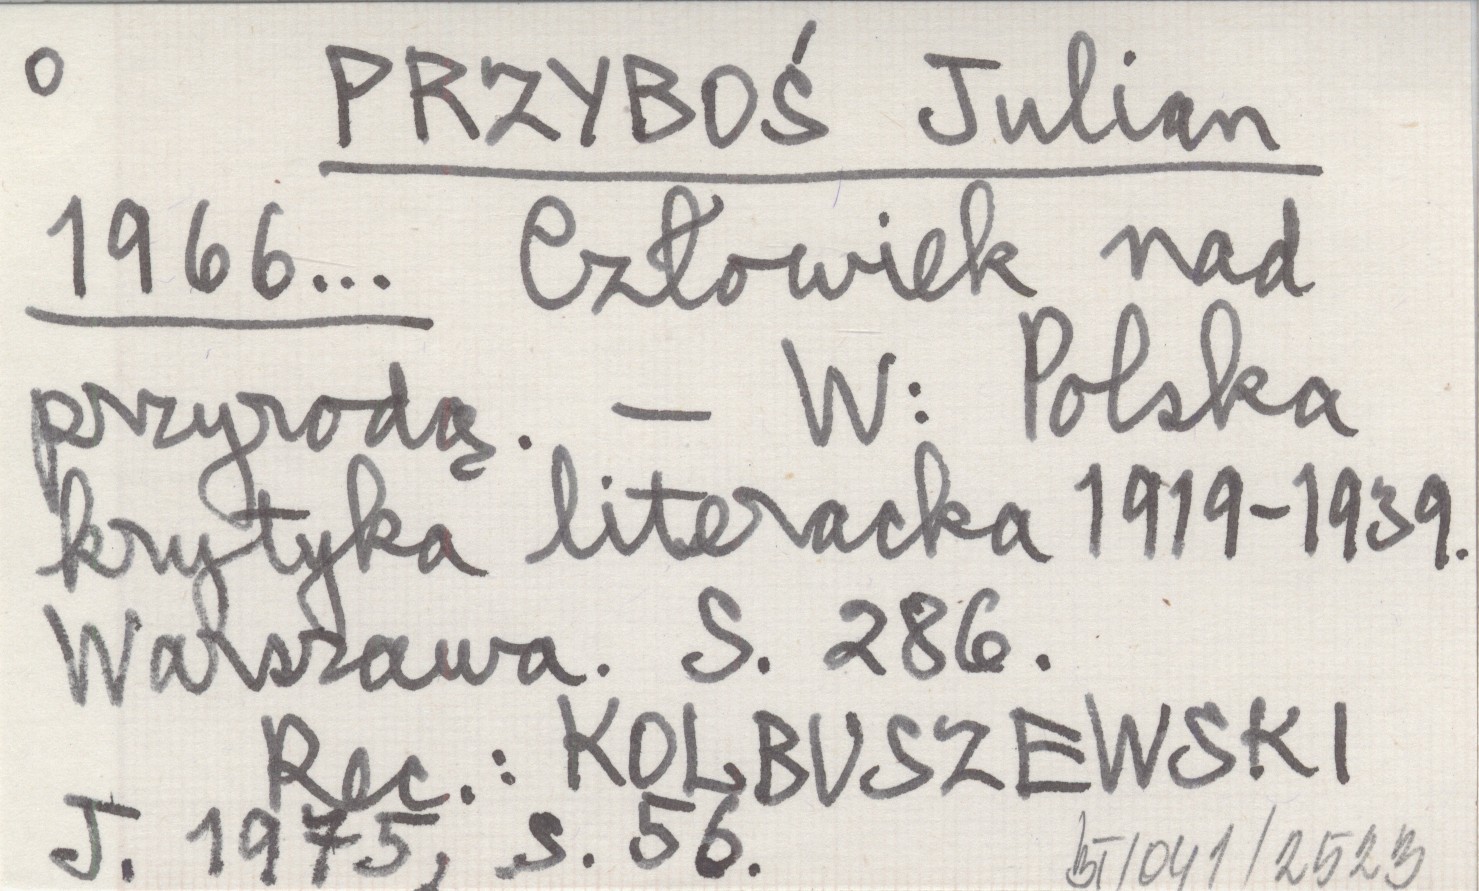 o PRZYBOŚ Julian
1966... Człowiek nad
przyrodą. — W: Polska
krytyka literacka 1919-1939.
Warszawa. S. 286.
Rec.: KOLBUSZEWSKI
J. 1975, s. 56.
/041/2523